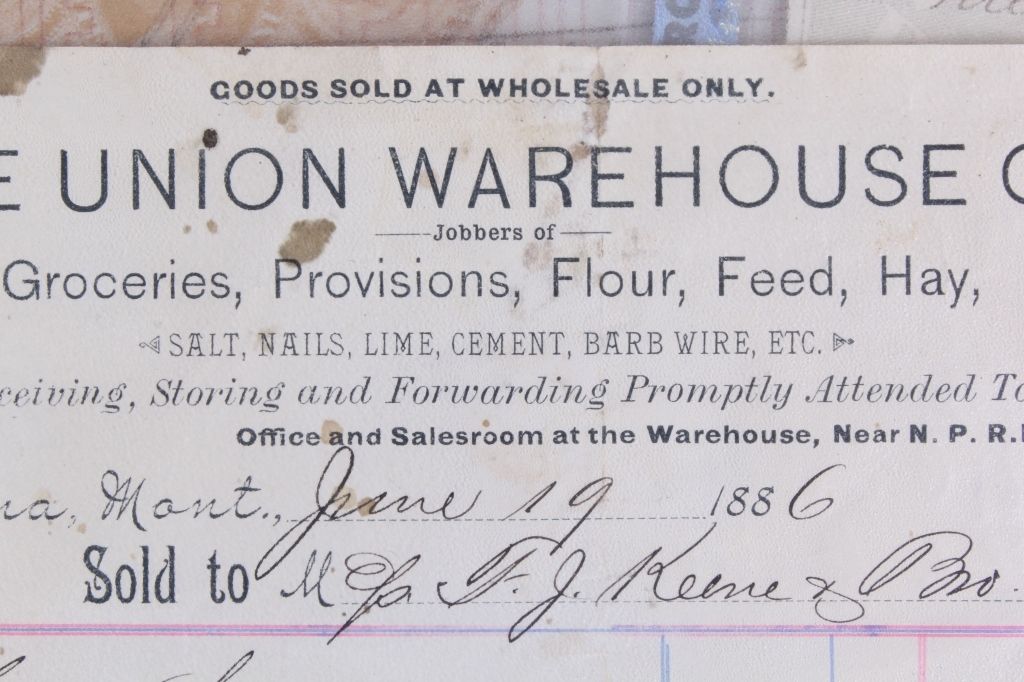 GOODS SOLD AT WHOLESALE ONLY.
E UNION WAREHOUSE C
Jobbers of
Groceries, Provisions, Flour, Feed, Hay,
SALT, NAILS, LIME, CEMENT, BARB WIRE, ETC.
ceiving, Storing and Forwarding Promptly Attended To
Office and Salesroom at the Warehouse, Near N. P. R.R
na, Mont., June 19 1886
Sold to M F. J. Keene & Bro.